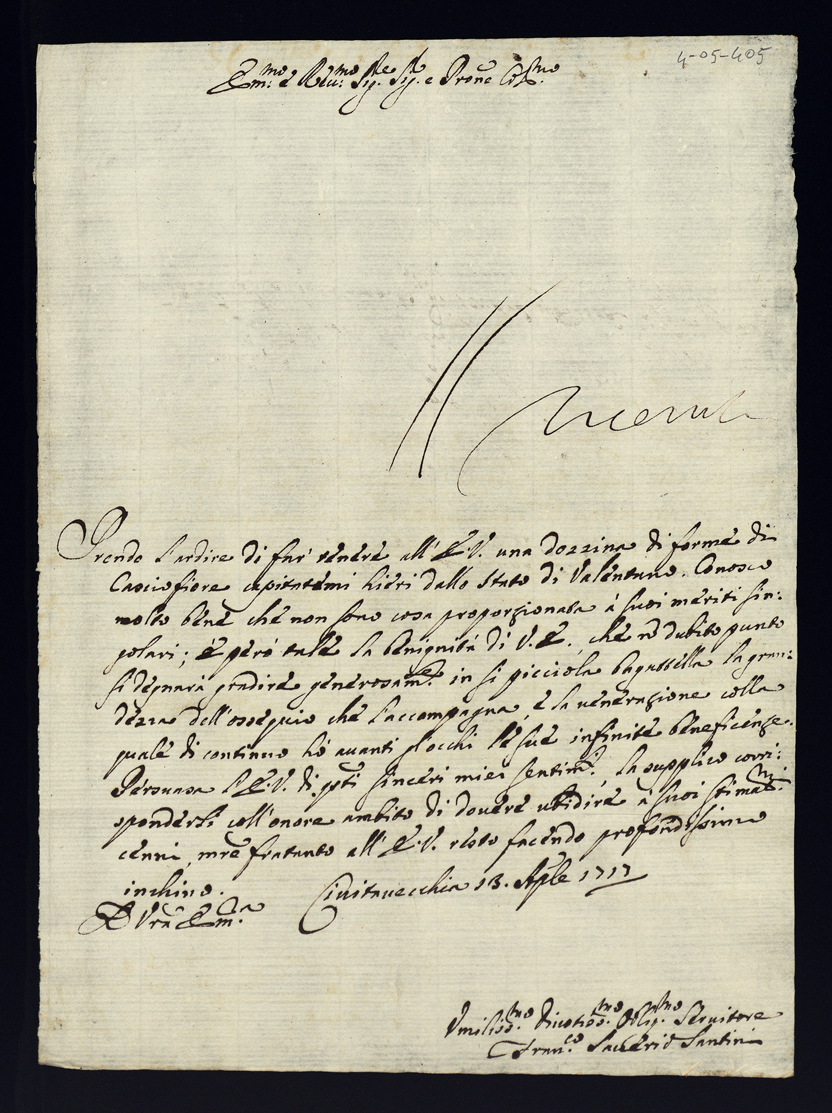 4-05-405
Em:mo e Reu:mo Sig.re Sig.r e Prone Col:mo
Prendo l'ardire di far tenere all'E.V. una dozzina di forme di
Caciofiore capitatemi hieri dallo Stato di Valentano. Conosco
molto bene che non sono cosa proporzionata a suoi meriti sin:
golari; è però tale la benignità di V.E., che nõ dubito punto
si degnarà gradire generosam.te in si picciola bagattella la gran:
dezza dell'ossequio che l'accompagna, e la venerazione colla
quale di continuo hò auanti gl'occhi le sue infinite beneficenze.
Persuasa l'E.V. di q̃sti sinceri miei sentim.ti, la supplico corri:
sponderli coll'onore ambito di douere ubidire à suoi stimat.mi
cenni, mr̃e fratanto all'E.V. resto facendo profondissimo
inchino.
D Vr̃a Em.a Ciuitauecchia 13. Ap̃le 1717
Vmiliss.mo Diuotiss.mo Oblig.mo Seruitore
Fran.co Sauerio Santini